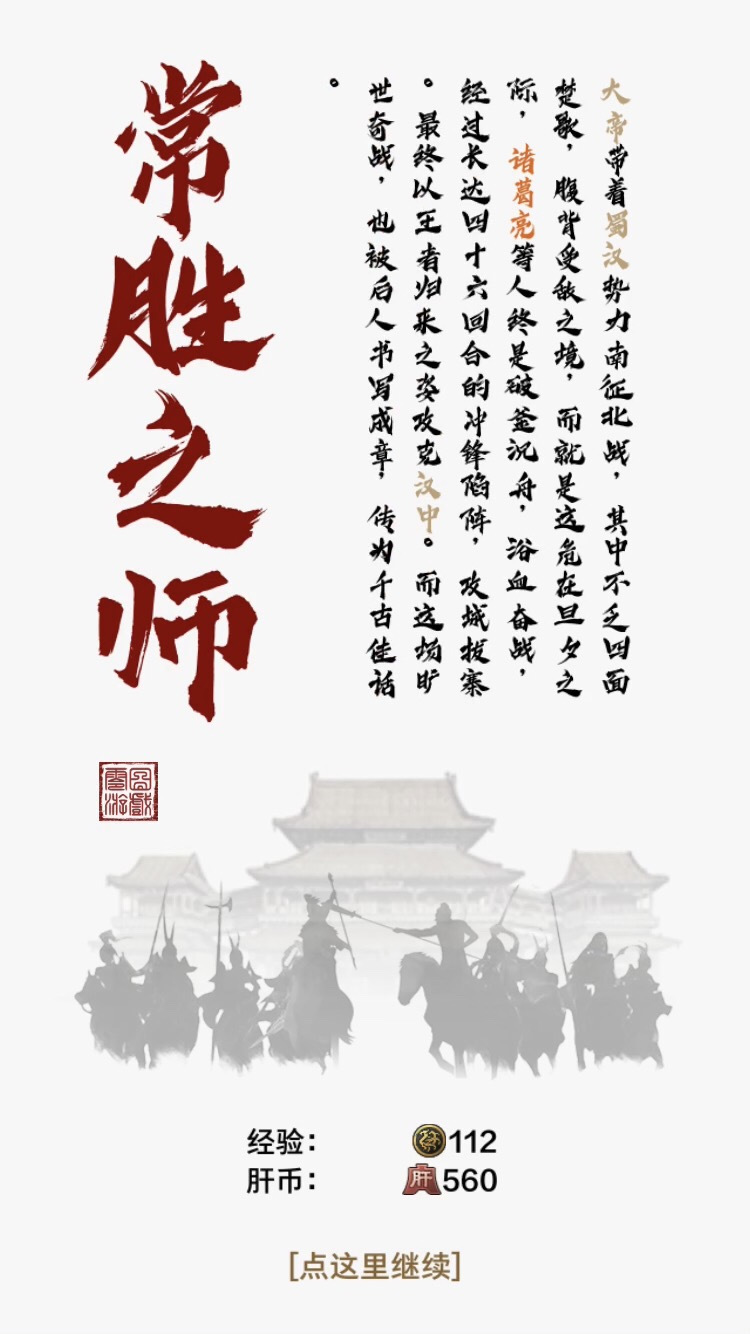 大帝带着蜀汉势力南征北战，其中不乏四面
楚歌，腹背受敌之境，而就是这危在旦夕之
际，诸葛亮等人终是破釜沉舟，浴血奋战，
经过长达四十六回合的冲锋陷阵，攻城拔寨
。最终以王者归来之姿攻克汉中。而这场旷
世奇战，也被后人书写成章，传为千古佳话
。
常胜之师
经验：112
肝币：肝560
[点这里继续]